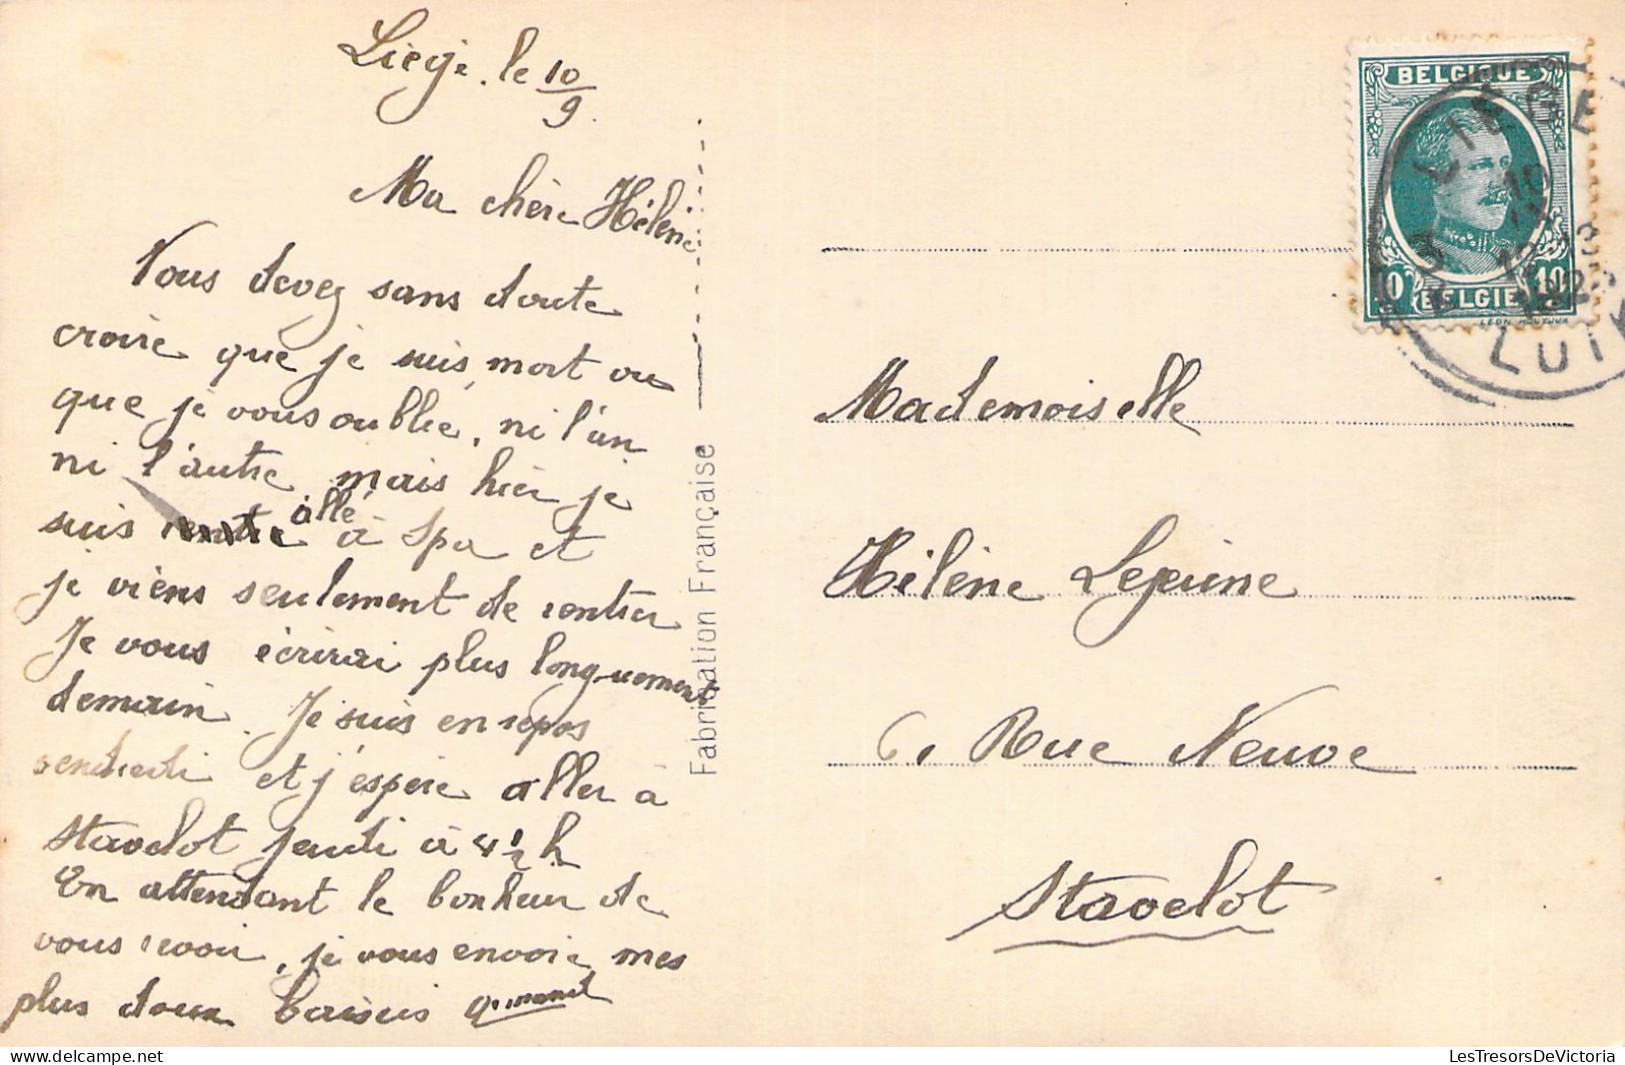 Liège, le 10/9
Ma chère Hélène
Vous devez sans doute
croire que je suis mort ou
que je vous oubliée, ni l'un
ni l'autre mais hier je
suis allé à Spa et
je viens seulement de rentrer
Je vous écrirai plus longuement
demain. Je suis en repos
vendredi et j'espère aller à
Stavelot jeudi à 4 1/2 h
En attendant le bonheur de
vous revoir, je vous envoie mes
plus doux baisers
Fabrication Française
BELGIQUE
10 BELGIE 10
LIEGE
LUIK
Mademoiselle
Hélène Lejeune
6, Rue Neuve
Stavelot
LesTresorsDeVictoria